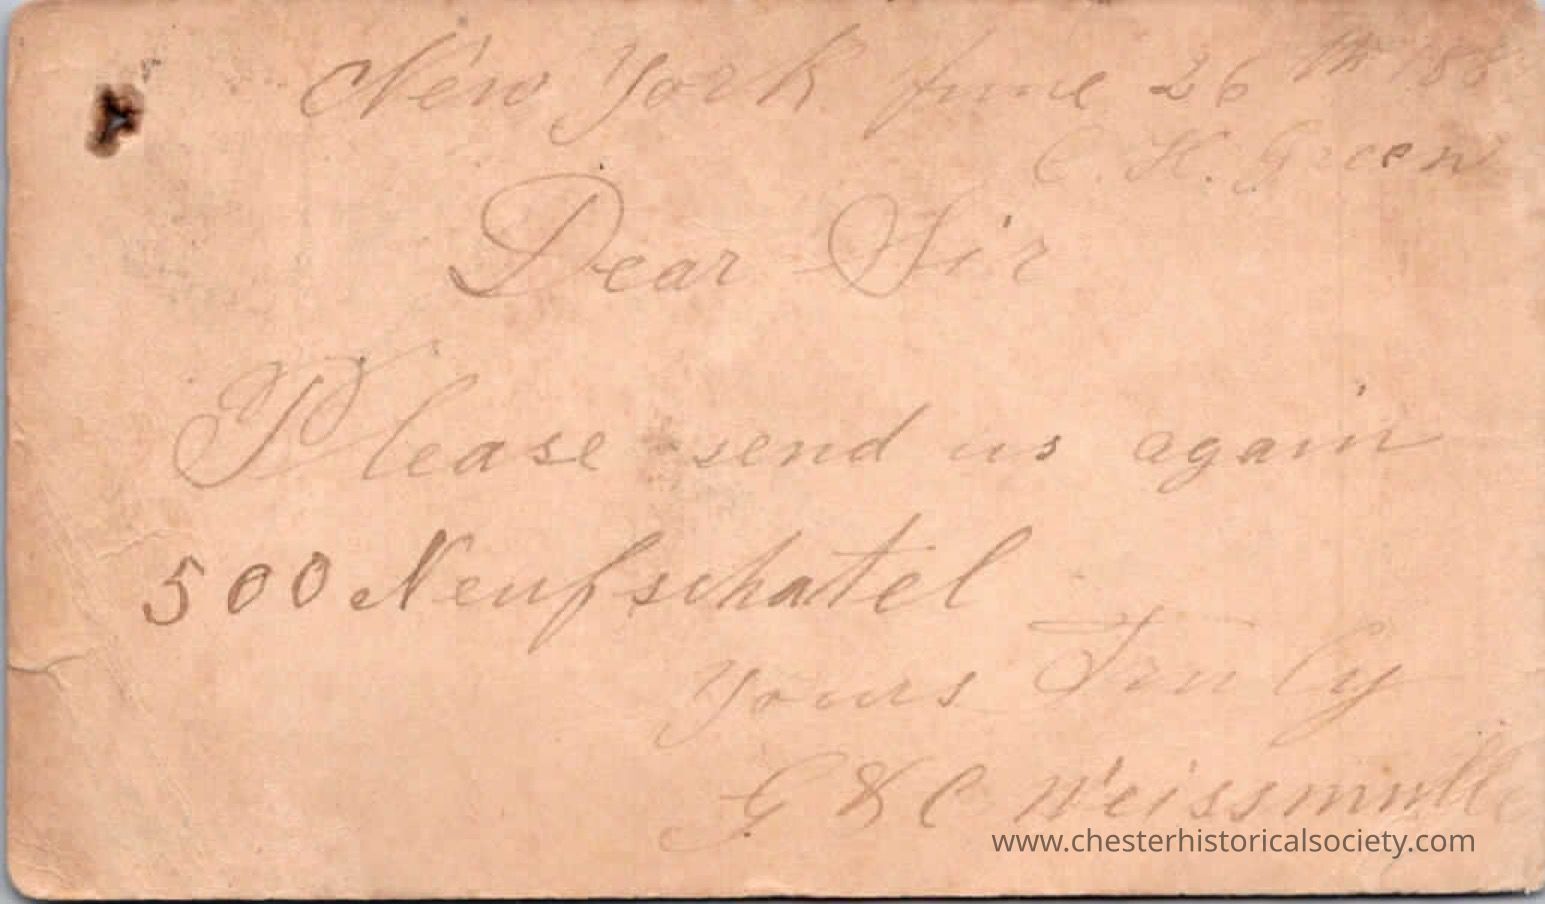 New York June 26th 188
C. H. Green
Dear Sir
Please send us again
500 Neufschatel
Yours Truly
G & C Weissmull
www.chesterhistoricalsociety.com